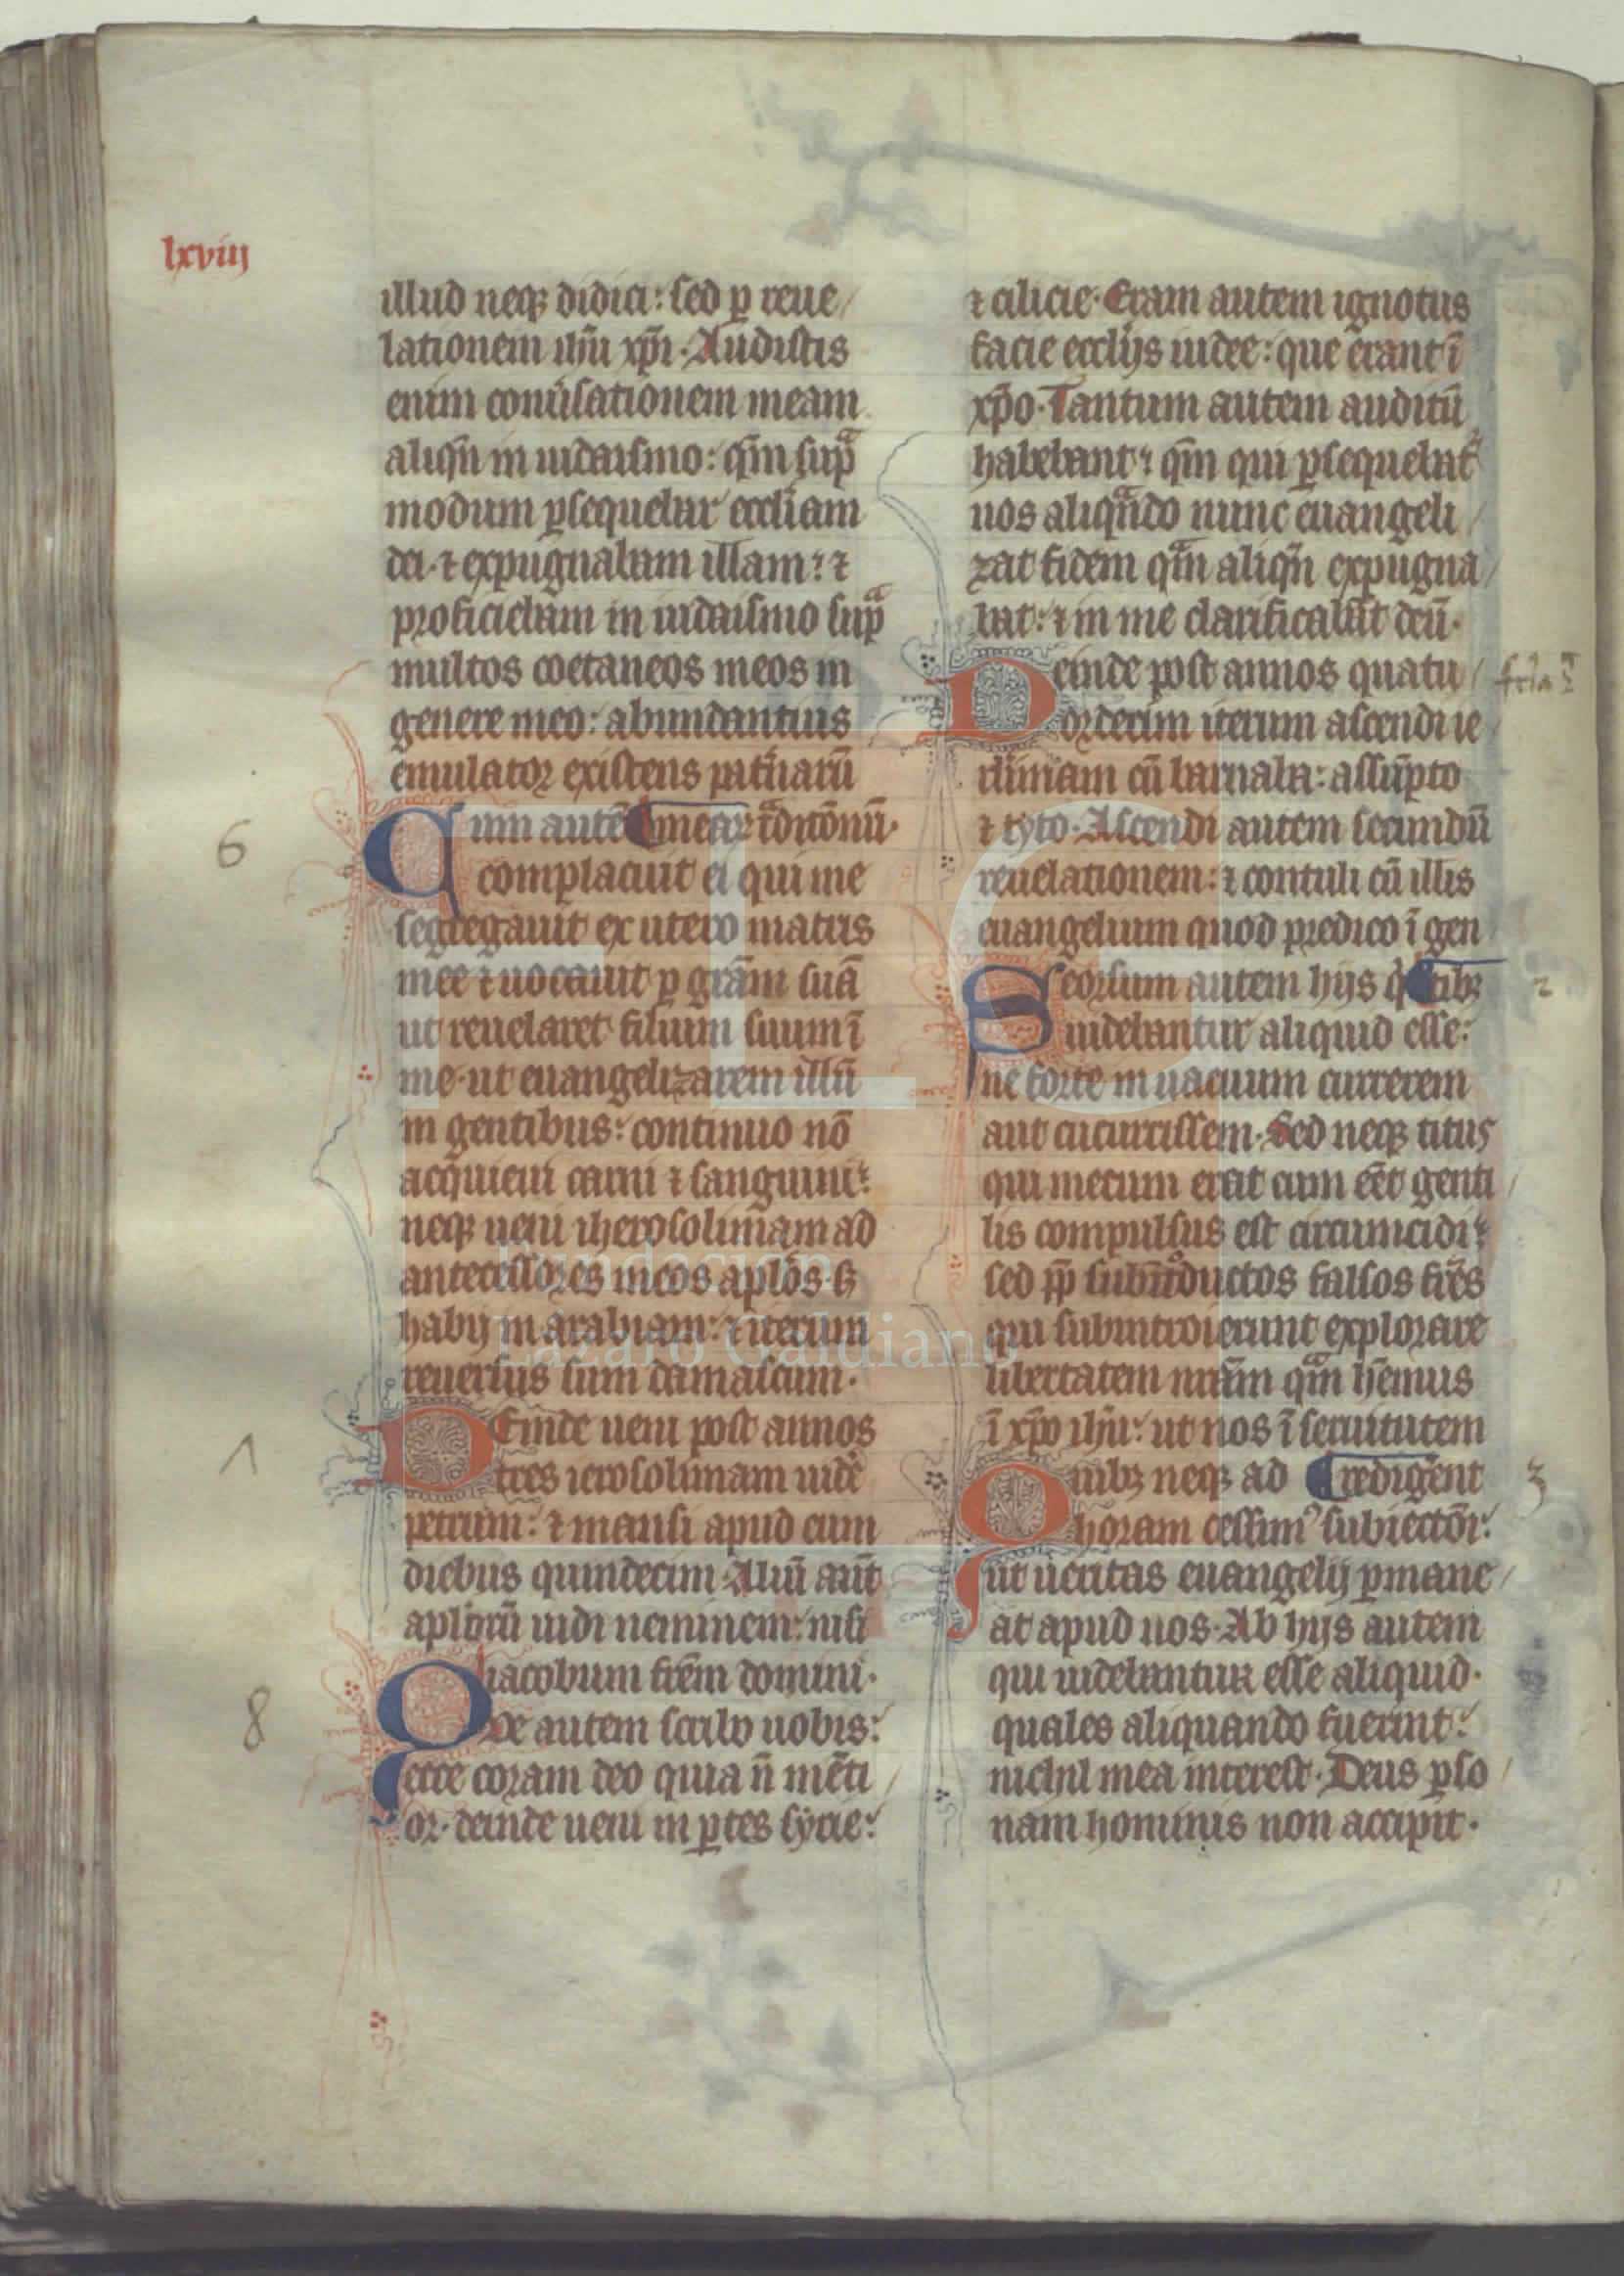 lxviij
illud neqꝫ didici: sed ꝑ reue/
lationem ihū xp̄i. Audistis
enim conúsationem meam
aliqn̄ in iudaismo: qm̄ supᵃ
modum ꝑsequebar eccliam
dei. ⁊ expugnabam illam: ⁊
proficiebam in iudaismo supᵃ
multos coetaneos meos in
genere meo: abundantius
emulator existens pat̄narū
6
Cum autē ¶mearꝝ tᵃditōnū.
complacuit ei qui me
segregauit ex utero matris
mee ⁊ uocauit ꝑ grām suā
ut reuelaret filium suum ī
me. ut euangelizarem illū
in gentibus: continuo nō
acquieui carni ⁊ sanguini:
neqꝫ ueni iherosolimam ad
antecessores meos aplōs. sꝫ
habij in arabiam: ⁊ iterum
reuersus sum damascum.
Deinde ueni post annos
tres ierosolimam uidē
petrum: ⁊ mansi apud eum
diebus quindecim. Aliū aūt
aplorū uidi neminem: nisi
iacobum frēm domini.
8
Que autem scribo uobis:
ecce coram deo quia n̄ mēti/
or. deinde ueni in ꝑtes sycie:
⁊ cilicie. Eram autem ignotus
facie eccliys iudee: que erant ī
xp̄o. Tantum autem auditū
habebant: qm̄ qui ꝑsequebatᷣ
nos aliqᵃndo nunc euangeli/
zat fidem qᵃm aliqn̄ expugna/
bat: ⁊ in me clarificabāt deū.
Deinde post annos quatu/
ordecim iterum ascendi ie/
rlimam cū barnaba: assūpto
⁊ tyto. Ascendi autem secundū
reuelationem: ⁊ contuli cū illis
euangelium quod predico ī gen
Seorsum autem hijs q̇ ¶tibꝫ
2
uidebantur aliquid esse:
ne forte in uacuum currerem
aut cucurrissem. Sed neqꝫ titus
qui mecum erat cum eēt genti/
lis compulsus est circumcidi:
sed ꝓp̄ subintᵒductos falsos frēs
qui subintroierunt explorare
libertatem nrām qᵃm hēmus
ī xp̄o ihū: ut nos ī seruitutem
Quibꝫ neqꝫ ad ¶redigēnt
3
horam cessimꝰ subiectōī:
ut ueritas euangelij ꝑmane/
at apud uos. Ab hijs autem
qui uidebantur esse aliquid.
quales aliquando fuerint:
nichil mea interest. Deus ꝑso/
nam hominis non accipit.
Fundación
Lázaro Galdiano